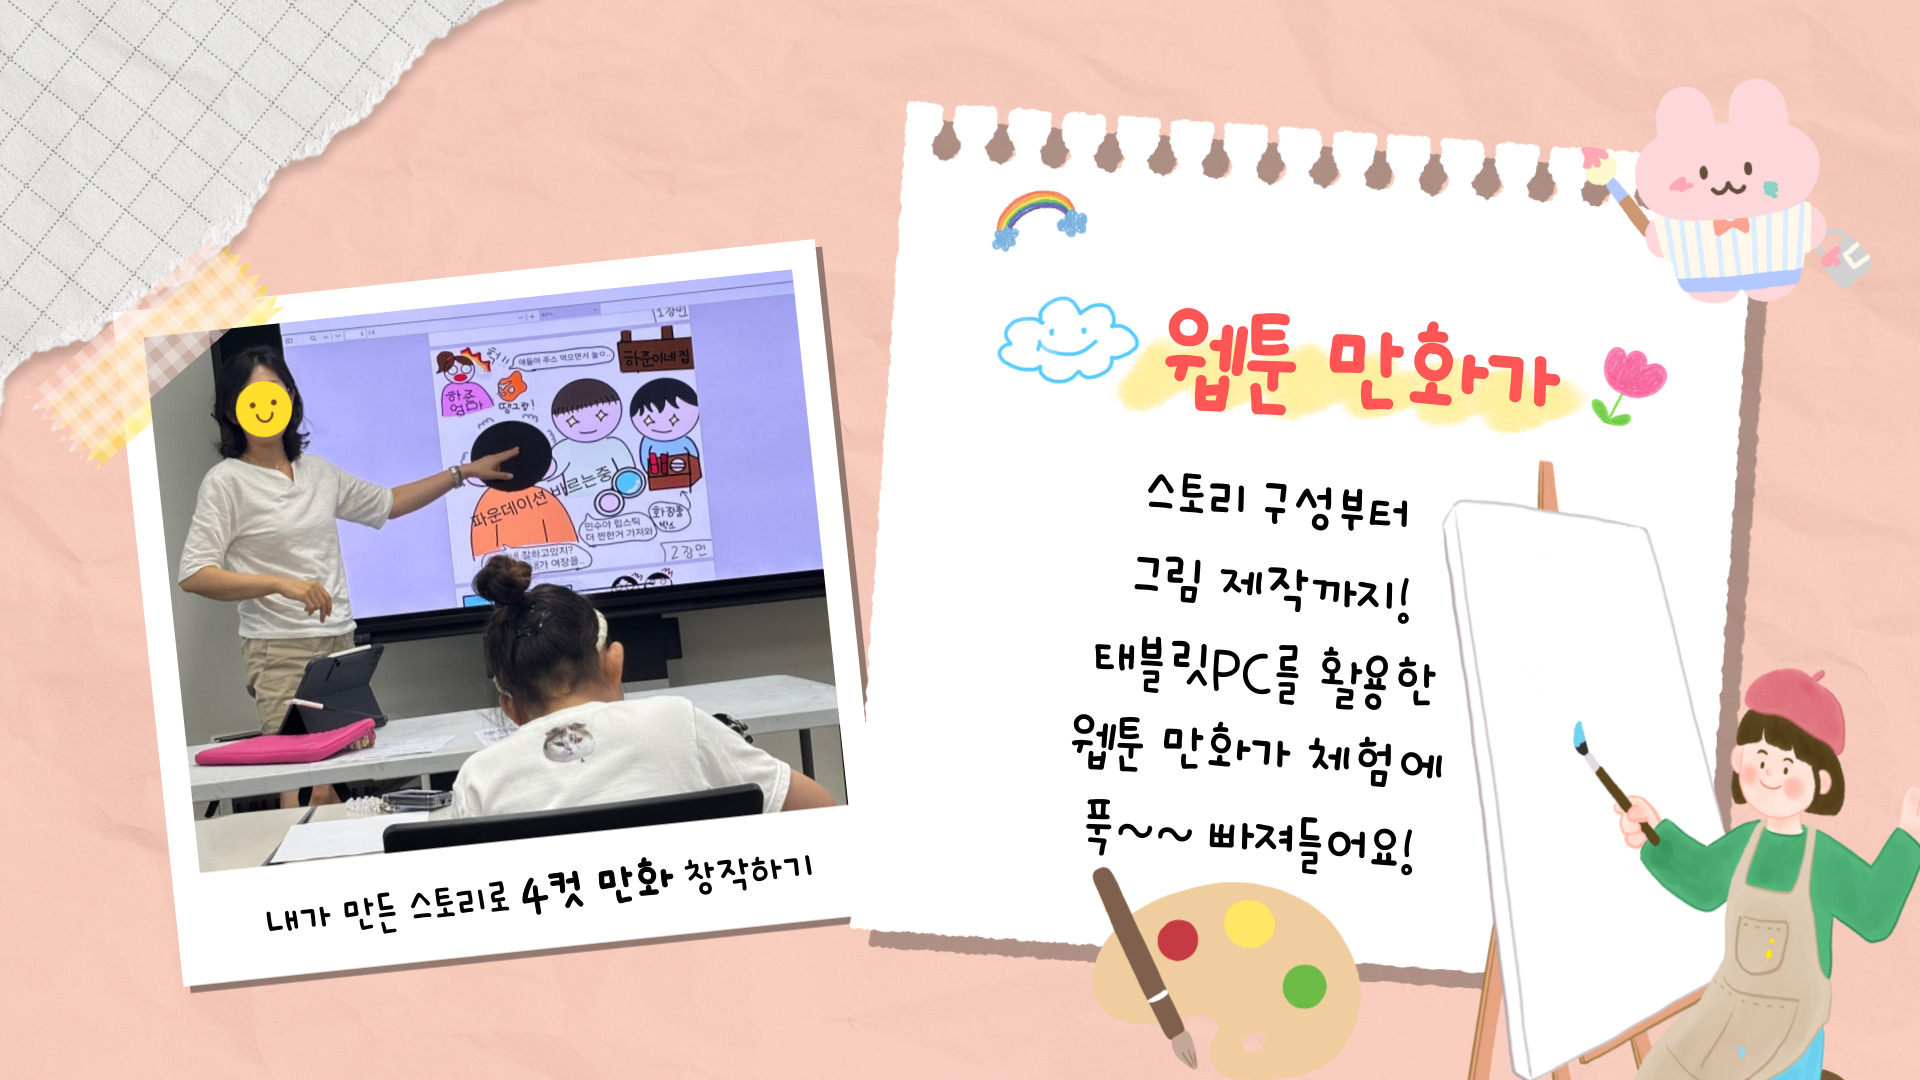 웹툰 만화가
스토리 구성부터
그림 제작까지!
태블릿PC를 활용한
웹툰 만화가 체험에
푹~~ 빠져들어요!
1장면
얘들아 주스 먹으면서 놀으..
하준이네 집
하준
엄마
땡그랑!
파운데이션 바르는중
민수야 립스틱
더 찐한거 가져와
화장품
박스
잘하고있지?
내가 여장을..
2장면
내가 만든 스토리로 4컷 만화 창작하기